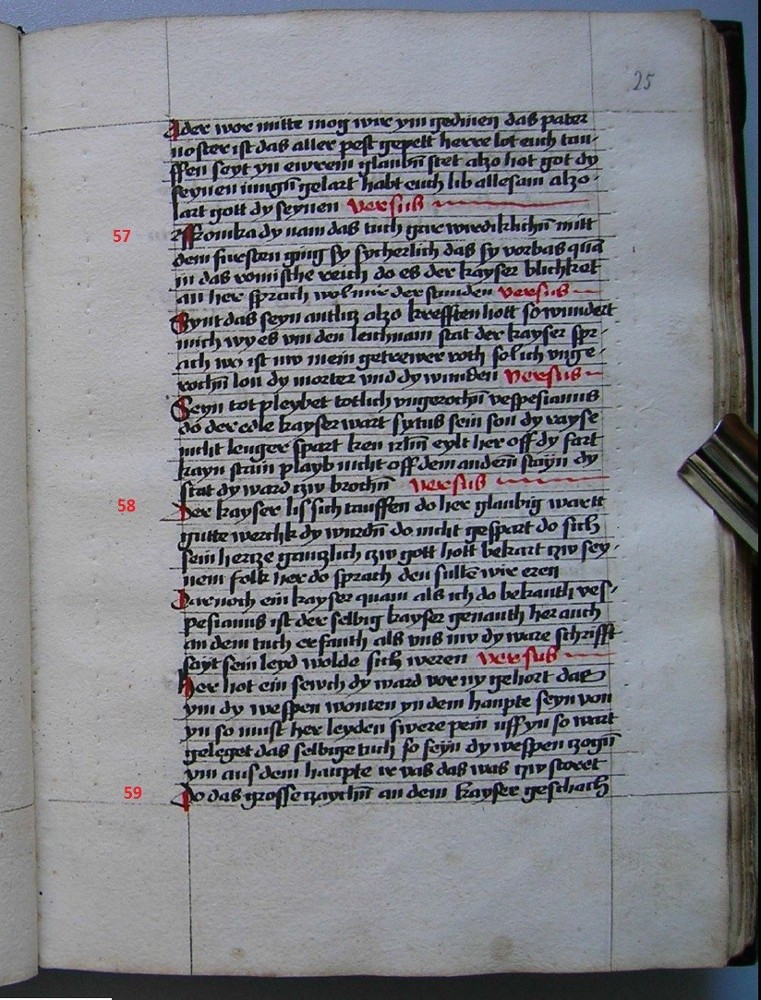 25
Ader wor mitte mog wir ym gedinen das pater
noster ist das aller pest gepett herre lot euch tau-
ffen seyt yn ewrem glaubn̄ stet alzo hot got dy
seynen iungn̄ gelart habt euch lib allesam alzo-
lart gott dy seynen versus
57
Fronika dy nam das tuch gar wirdiklichn̄ mitt
dem fursten ging sy sycherlich das sy vorbas quā
in das romische reich do es der kayser blichket
an her sprach wol mir der stunden versus
Synt das seyn antlitz alzo krefften hott so wundert
mich wy es vm den leichnam stat der kayser spr-
ach wo ist nw mein getrewer roth sol ich vnge-
rochn̄ lon dy morter vnd dy wunden versus
Seyn tot pleybet totlich vngerochn̄ vespesianus
do der edle kayser wart tytus sein son dy rayse
nicht lenger spart ken irlm̄ eylt her off dy fart
kayn stain playb nicht off dem andern̄ stayn dy
stat dy ward tzw brochn̄ versus
58
Der kayser lis sich tauffen do her glaubig wartt
gutte werchk dy wurdn̄ do nicht gespart do sich
sein hertze gantzlich tzw gott hott bekart tzw sey-
nem folk her do sprach den sullē wir eren
Darnoch ein kayser quam als ich do bekanth ves-
pesianus ist der selbig kayser genanth her auch
an dem tuch erfanth als vns nw dy ware schrifft
sayt sein leyd wolde sich weren versus
Her hot ein sewch dy ward vor ny gehort das
ym dy wespen wonten yn dem haupte seyn von
yn so must her leyden swere pein uff yn so wart
geleget das selbige tuch so seyn dy wespen tzogn̄
ym aus dem haupte ir vas das was tzw storet
59
Do das grosse tzaychn̄ an dem kayser geschach